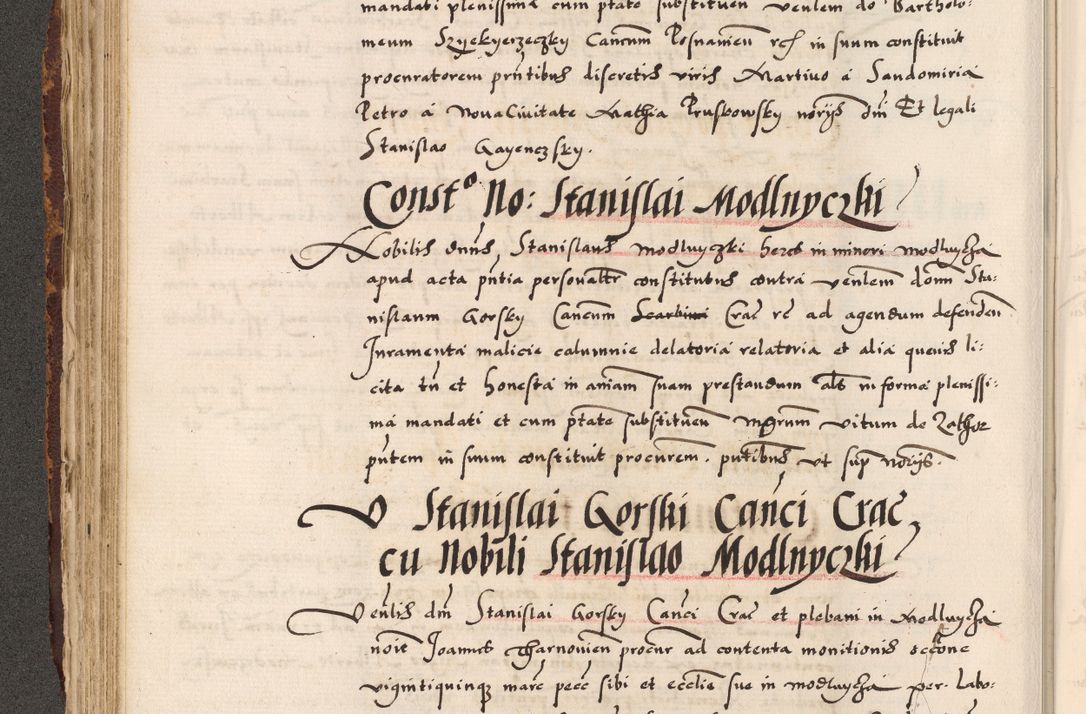 mandati plenissima cum ptate substituen venlem do Bartholo:
meum Szyekyerzeczky Cancum Posnanien in suum constituit
procuratorem pntibus discretis viris Martino a Sandomiria
Petro a Nova Civitate Mathia Pruskowsky norijs dni Et legali
Stanislao Gayenczsky.
Consto No: Stanislai Modlnyczki
Nobilis dnus Stanislaus modlnyczki heres in minori modlnycza
apud acta pntia personaltr constitutus contra venlem donm Sta:
nislaum Gorsky Cancum Crac re ad agendum defenden
Juramenta malicie calumnie delatoria relatoria et alia quevis li:
cita tn et honesta in aniam suam prestandum als in forma plenissi:
ma mandati et cum ptate substituen mgrum vitum de Zathor
pntem in suum constituit procurem. pntibus ut sup norijs.
V Stanislai Gorski Canci Crac
cu Nobili Stanislao Modlnyczki
Venlis dni Stanislai Gorsky Canci Crac et plebani in Modlnycza
noie Joannes Tharnovien procur ad contenta monitionis
vigintiquinqz marc pecc sibi et ecclie sue in modlnycza per. Labo: